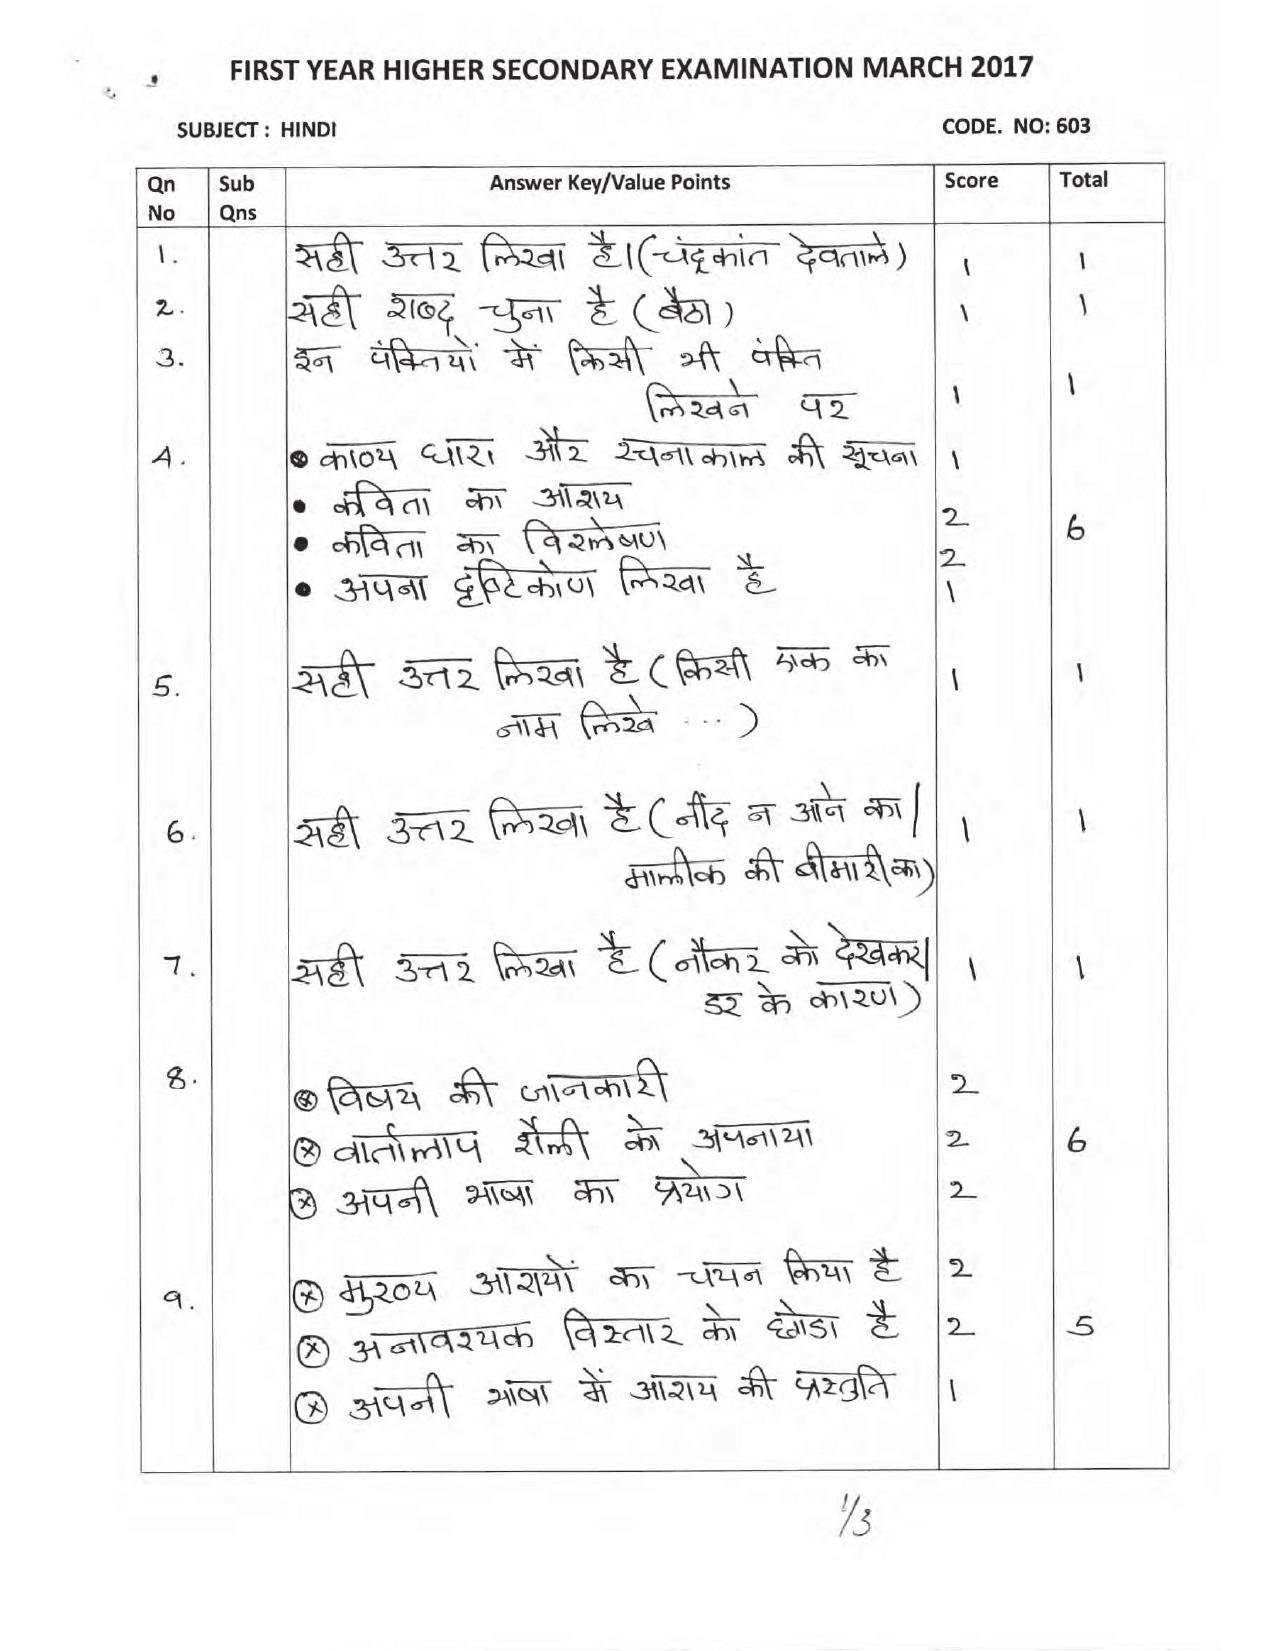 FIRST YEAR HIGHER SECONDARY EXAMINATION MARCH 2017
SUBJECT : HINDI CODE. NO: 603
Qn No Sub Qns Answer Key/Value Points Score Total
1. सही उत्तर लिखा है।(चंद्रकांत देवताले) 1 1
2. सही शब्द चुना है (बैठा) 1 1
3. इन पंक्तियों में किसी भी पंक्ति
लिखने पर 1 1
4. काव्य धारा और रचनाकाल की सूचना 1
• कविता का आशय 2 6
• कविता का विश्लेषण 2
• अपना दृष्टिकोण लिखा है 1
5. सही उत्तर लिखा है (किसी एक का 1 1
नाम लिखे ...)
6. सही उत्तर लिखा है (नींद न आने का/ 1 1
मालीक की बीमारी का)
7. सही उत्तर लिखा है (नौकर को देखकर/ 1 1
डर के कारण)
8. विषय की जानकारी 2
वार्तालाप शैली को अपनाया 2 6
अपनी भाषा का प्रयोग 2
9. मुख्य आशयों का चयन किया है 2
अनावश्यक विस्तार को छोडा है 2 5
अपनी भाषा में आशय की प्रस्तुति 1
1/3